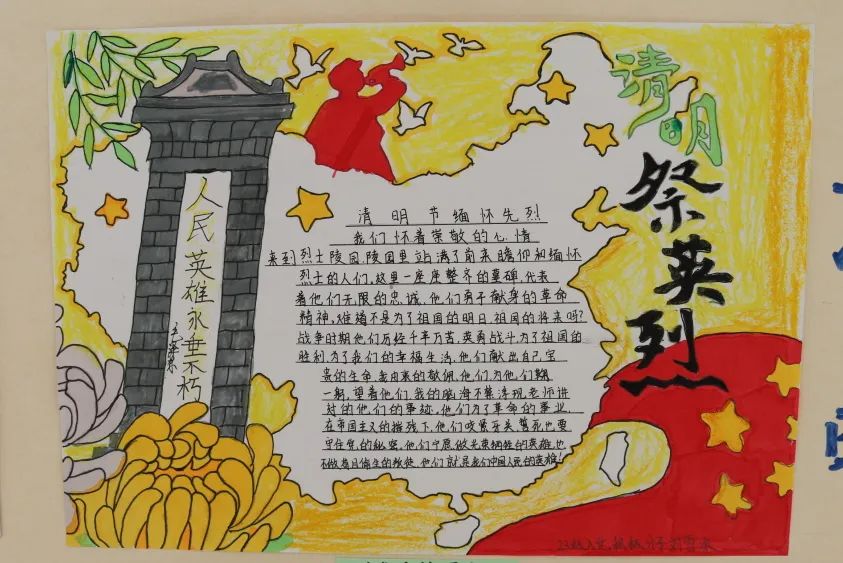 清明
祭英烈
人民英雄永垂不朽
清明节缅怀先烈
我们怀着崇敬的心情
来到烈士陵园,陵园里站满了前来瞻仰和缅怀
烈士的人们,这里一座座整齐的墓碑,代表
着他们无限的忠诚,他们勇于献身的革命
精神,难道不是为了祖国的明日,祖国的将来吗?
战争时期他们历经千辛万苦,英勇战斗为了祖国的
胜利,为了我们的幸福生活,他们献出自己宝
贵的生命,我由衷的敬佩他们,为他们鞠
一躬,望着他们,我的脑海不禁浮现,老师讲
过的他们的事迹,他们为了革命的事业
在帝国主义的摧残下,他们咬紧牙关,誓死也要
守住党的秘密,他们宁愿做光荣牺牲的英雄,也
不做苟且偷生的叛徒,他们就是我们中国人民的英雄!